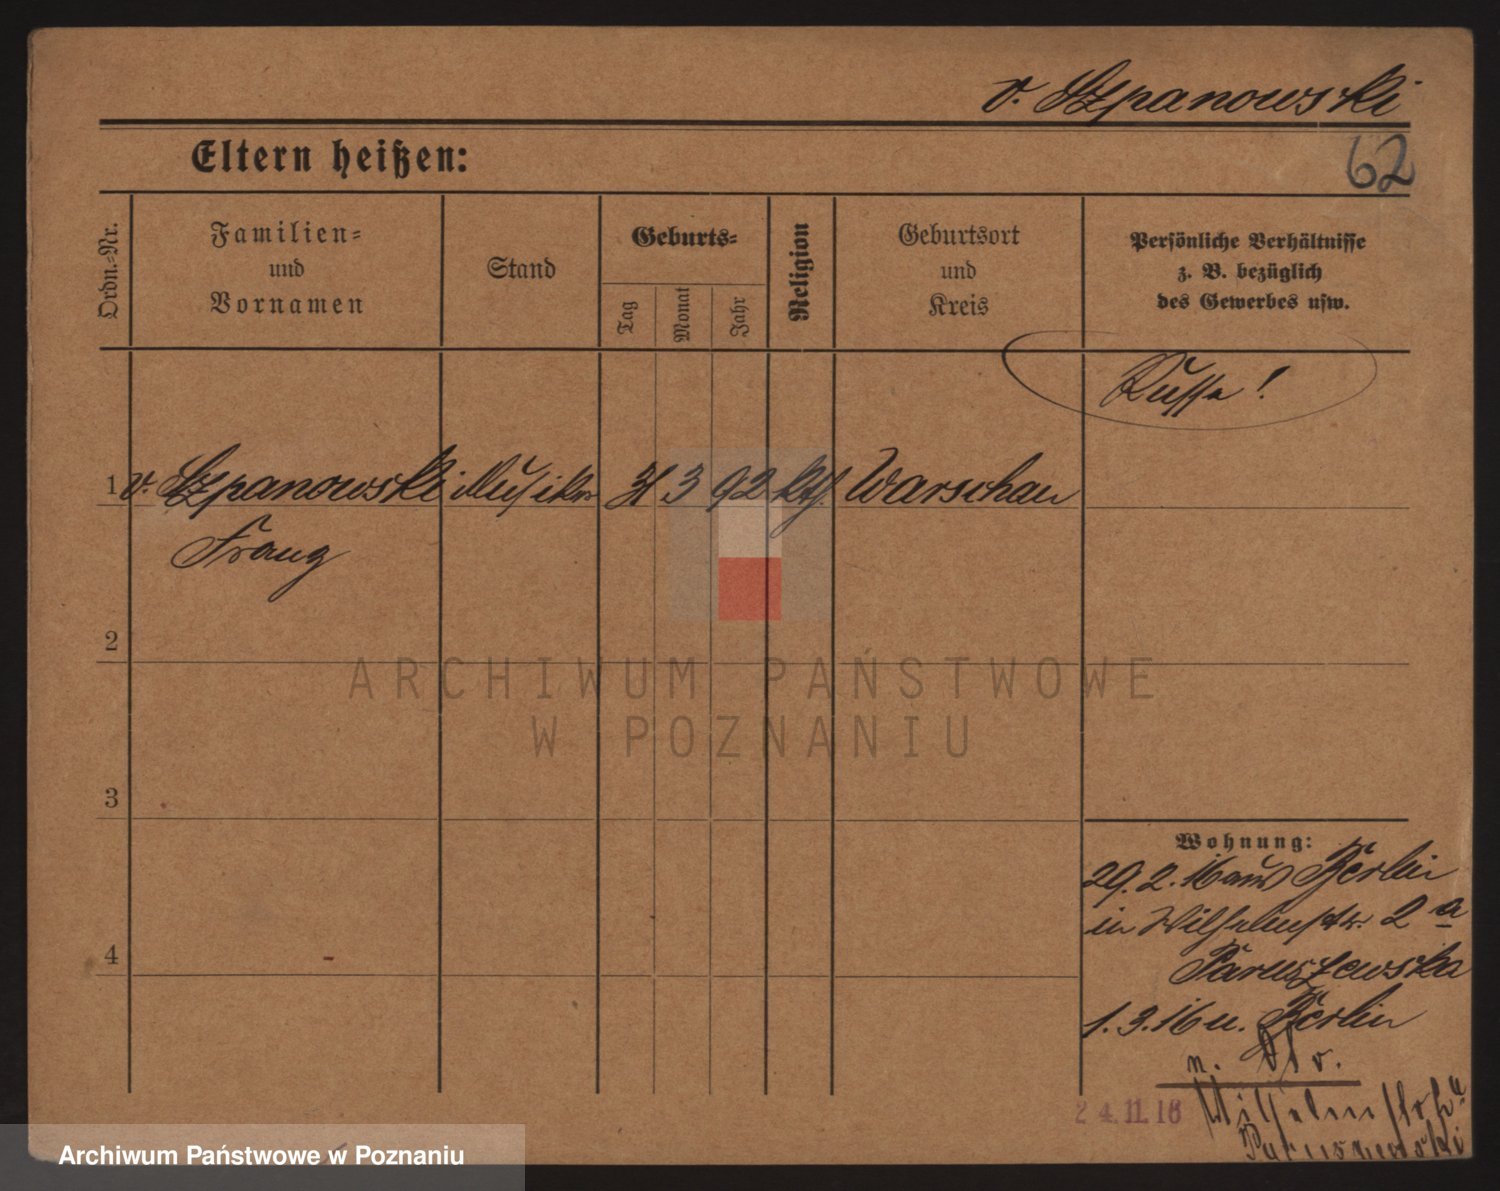 v. Szpanowski
Eltern heißen:
62
Ordn.-Nr.
Familien-
und
Vornamen
Stand
Geburts-
Tag
Monat
Jahr
Religion
Geburtsort
und
Kreis
Persönliche Verhältnisse
z. B. bezüglich
des Gewerbes usw.
Russe!
1 v. Szpanowski Musiker 31 3 92 kth. Warschau
Franz
2
3
4
Wohnung:
29. 2. 16 aus Berlin
in Wilhelmstr. 2 a
Paruszewska
1. 3. 16 n. Berlin
n.
24.11.16 Wilhelmstr.
Paruszewski
ARCHIWUM PAŃSTWOWE
W POZNANIU
Archiwum Państwowe w Poznaniu